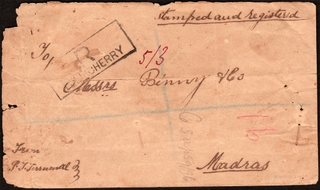 Stamped and registered
To,
R
CHERRY
5/3
Messrs Binny & Co
Madras
From